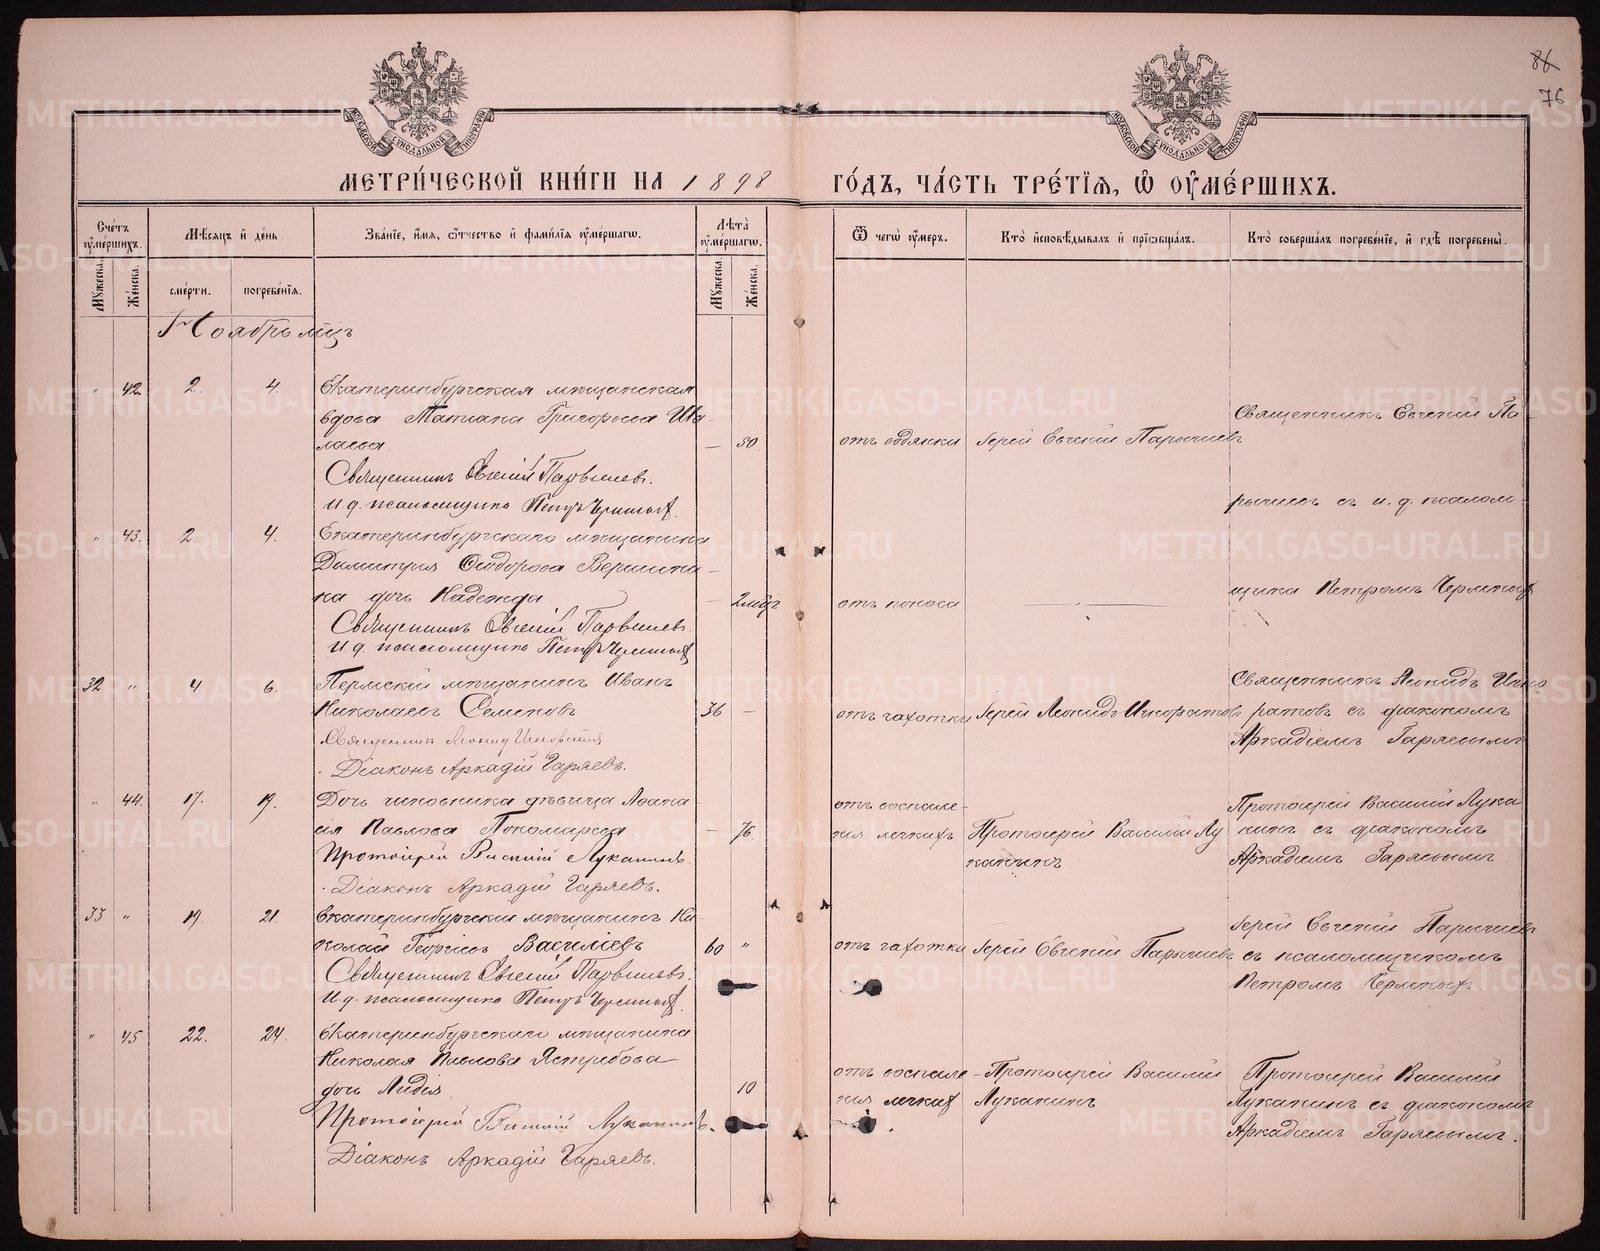 86
76
МЕТРИ́ЧЕСКОЙ КНИ́ГИ НА 1898
ГО́ДЪ, ЧА́СТЬ ТРЕ́ТІѦ, Ѡ ОУМЕ́РШИХЪ.
Сче́тъ оуме́ршихъ.
Мꙋжеска.
Же́нска.
Мѣ́сѧцъ и де́нь
сме́рти.
погребе́нїѧ.
Зва́нїе, и́мѧ, ѻ́тчество и фами́лїѧ оуме́ршагѡ.
Лѣ́та оуме́ршагѡ.
Мꙋжеска.
Же́нска.
Ѿ чегѡ̀ оу́меръ.
Кто̀ и́сповѣ́дывалъ и прїѡбща́лъ.
Кто̀ соверша́лъ погребе́нїе, и гдѣ̀ погребены̀.
Ноябрь мцъ
" 42. 2. 4. Екатеринбургская мѣщанская
вдова Татіана Григорьева Ша-
лаева — 80
Священникъ Евгеній Парышевъ.
И.д. псаломщика Петръ
отъ оддянки
Іерей Евгеній Парышевъ
Священникъ Евгеній Па-
рышевъ съ и. д. псалом-
щика Петромъ
" 43. 2 4. Екатеринбургскаго мѣщанина
Димитрія Ѳеодорова Вершини-
на дочь Надежда — 2 мѣц
Священникъ Евгеній Парышевъ
И.д. псаломщика Петръ
отъ поноса
32 " 4. 6. Пермскій мѣщанинъ Иванъ
Николаевъ Семеновъ 36 —
Священникъ Леонид Игноратов
Діаконъ Аркадій Гаряевъ.
отъ чахотки
Іерей Леонидъ Игноратовъ
Священникъ Леонидъ Игно-
ратовъ съ діакономъ
Аркадіемъ Гаряевымъ
" 44. 17. 19. Дочь чиновника дѣвица Аѳана-
сія Павлова Пономарева. — 76
Протоіерей Василій Луканинъ.
Діаконъ Аркадій Гаряевъ.
отъ воспале-
нія легкихъ
Протоіерей Василій Лу
канинъ
Протоіерей Василій Лука
нинъ съ діакономъ
Аркадіемъ Гаряевымъ
33 " 19. 21. Екатеринбургскій мѣщанинъ Ни-
колай Георгіевъ Василіевъ 60 "
Священникъ Евгеній Парышевъ.
И.д. псаломщика Петръ
отъ чахотки
Іерей Евгеній Парышевъ
Іерей Евгеній Парышевъ
съ псаломщикомъ
Петромъ
" 45 22. 24. Екатеринбургскаго мѣщанина
Николая Павлова Ястребова
дочь Лидія 10
Протоіерей Василій Луканинъ.
Діаконъ Аркадій Гаряевъ.
отъ воспале
нія легкихъ
Протоіерей Василій
Луканинъ
Протоіерей Василій
Луканинъ съ діакономъ
Аркадіемъ Гаряевымъ.
METRIKI.GASO-URAL.RU